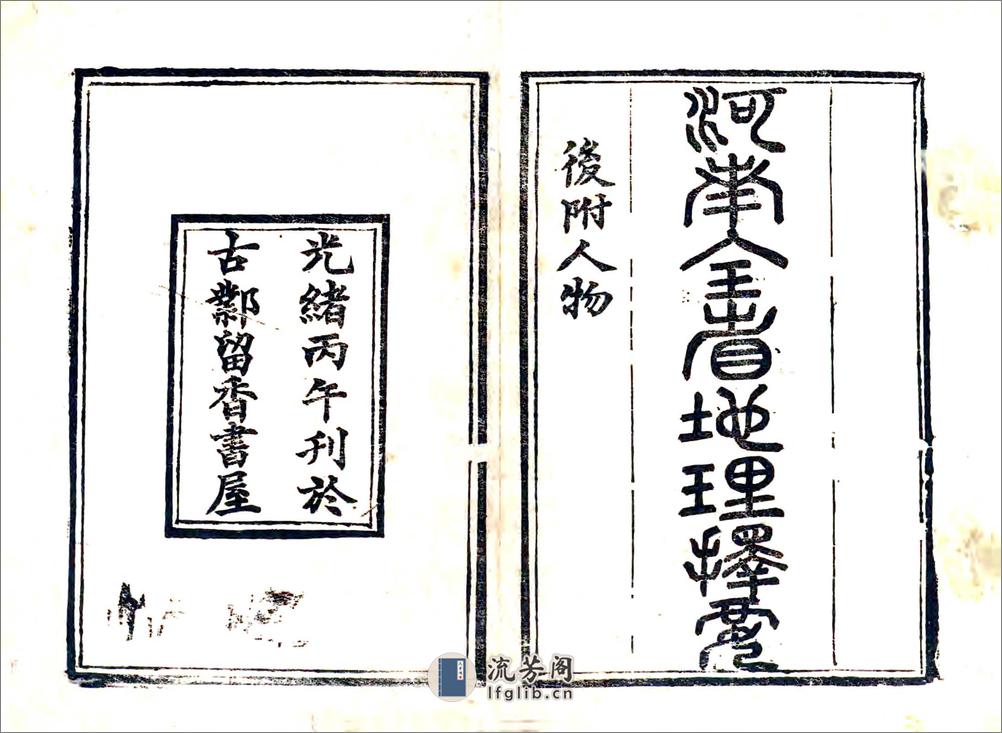 河南全省地理擇要
後附人物
光緒丙午刊於
古鄴留香書屋
流芳阁
lfglib.cn